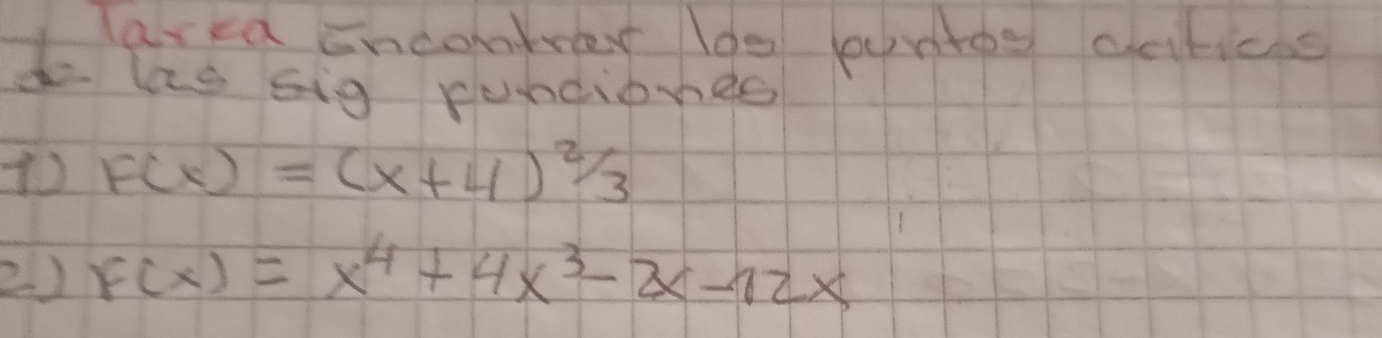 Tarea Encontrar los puntos criticos
de las sig funciones
1) F(x) = (x+4)^2/3
2) F(x) = x^4 + 4x^3 - 2x - 12x